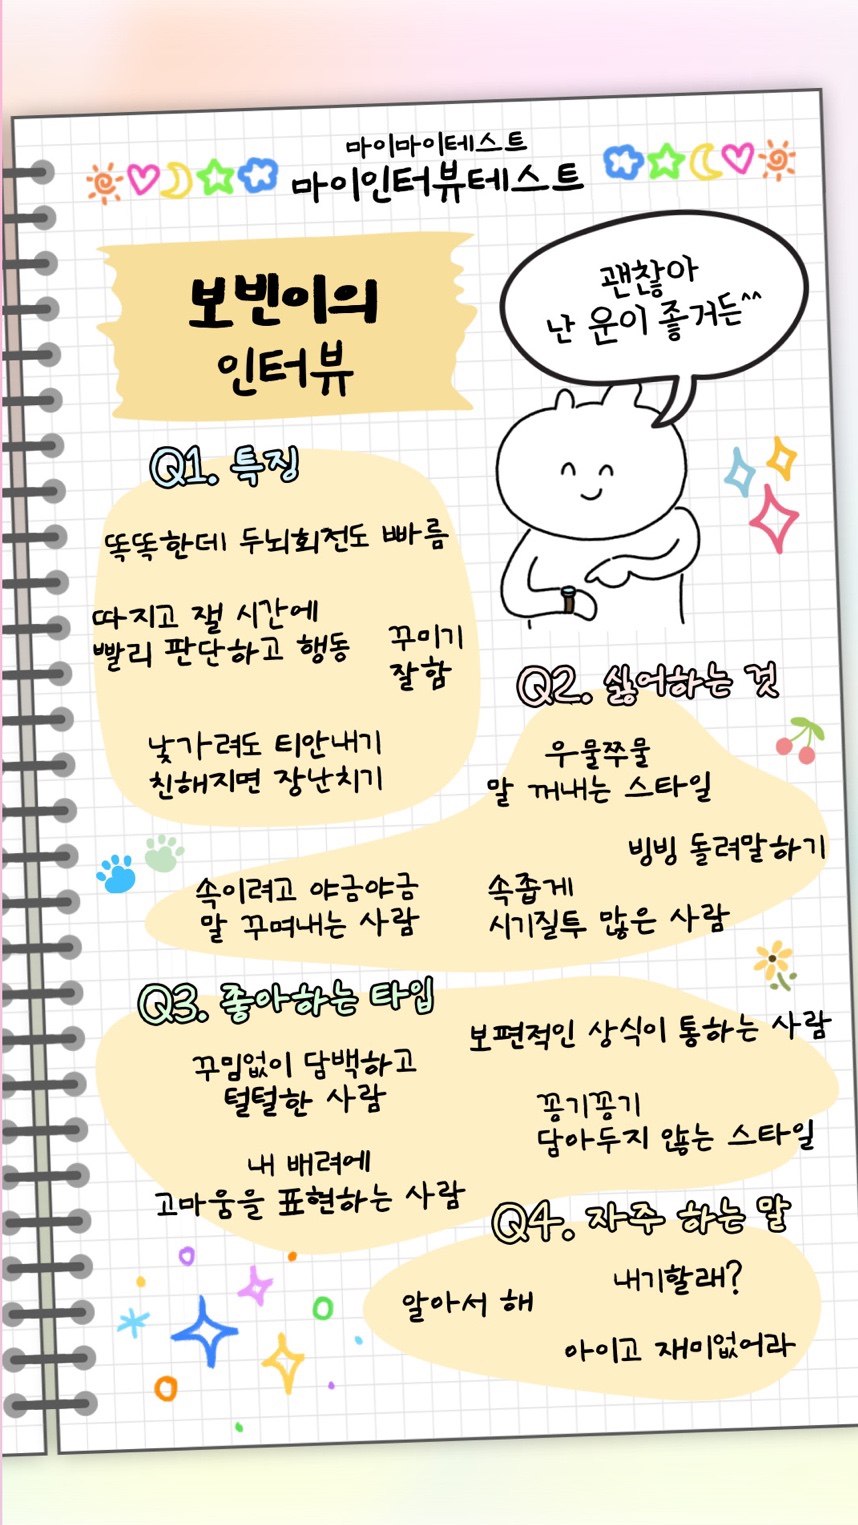 마이마이테스트
마이인터뷰테스트
보빈이의
인터뷰
괜찮아
난 운이 좋거든^^
Q1. 특징
똑똑한데 두뇌회전도 빠름
따지고 잴 시간에
빨리 판단하고 행동
꾸미기
잘함
낯가려도 티안내기
친해지면 장난치기
Q2. 싫어하는 것
우물쭈물
말 꺼내는 스타일
빙빙 돌려말하기
속이려고 야금야금
말 꾸며내는 사람
속좁게
시기질투 많은 사람
Q3. 좋아하는 타입
보편적인 상식이 통하는 사람
꾸밈없이 담백하고
털털한 사람
꽁기꽁기
담아두지 않는 스타일
내 배려에
고마움을 표현하는 사람
Q4. 자주 하는 말
내기할래?
알아서 해
아이고 재미없어라